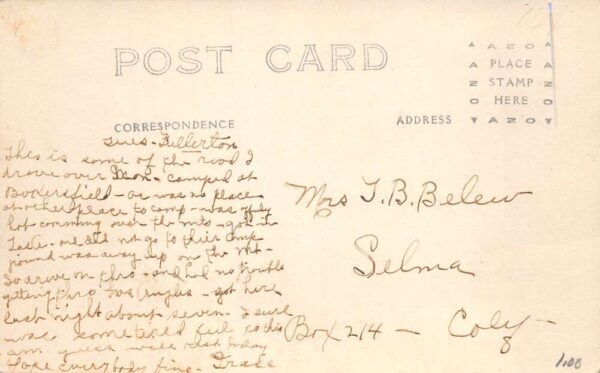 POST CARD
AZO
PLACE
STAMP
HERE
AZO
CORRESPONDENCE
ADDRESS
Tues - Fullerton
This is some of the road I
drove over Mon - camped at
- or was no place
at other place to camp - was
hot comming over the mts - got it
we did not go to their camp
ground was away up on the mt -
So drove on thro - and had no trouble
getting thro Los Angles - got here
last night about seven. I sure
was some tired feel
am guess will rest today
Hope Everybody fine - Grace
Mrs T. B. Belew
Selma
Box 214 - Calf -
1.00